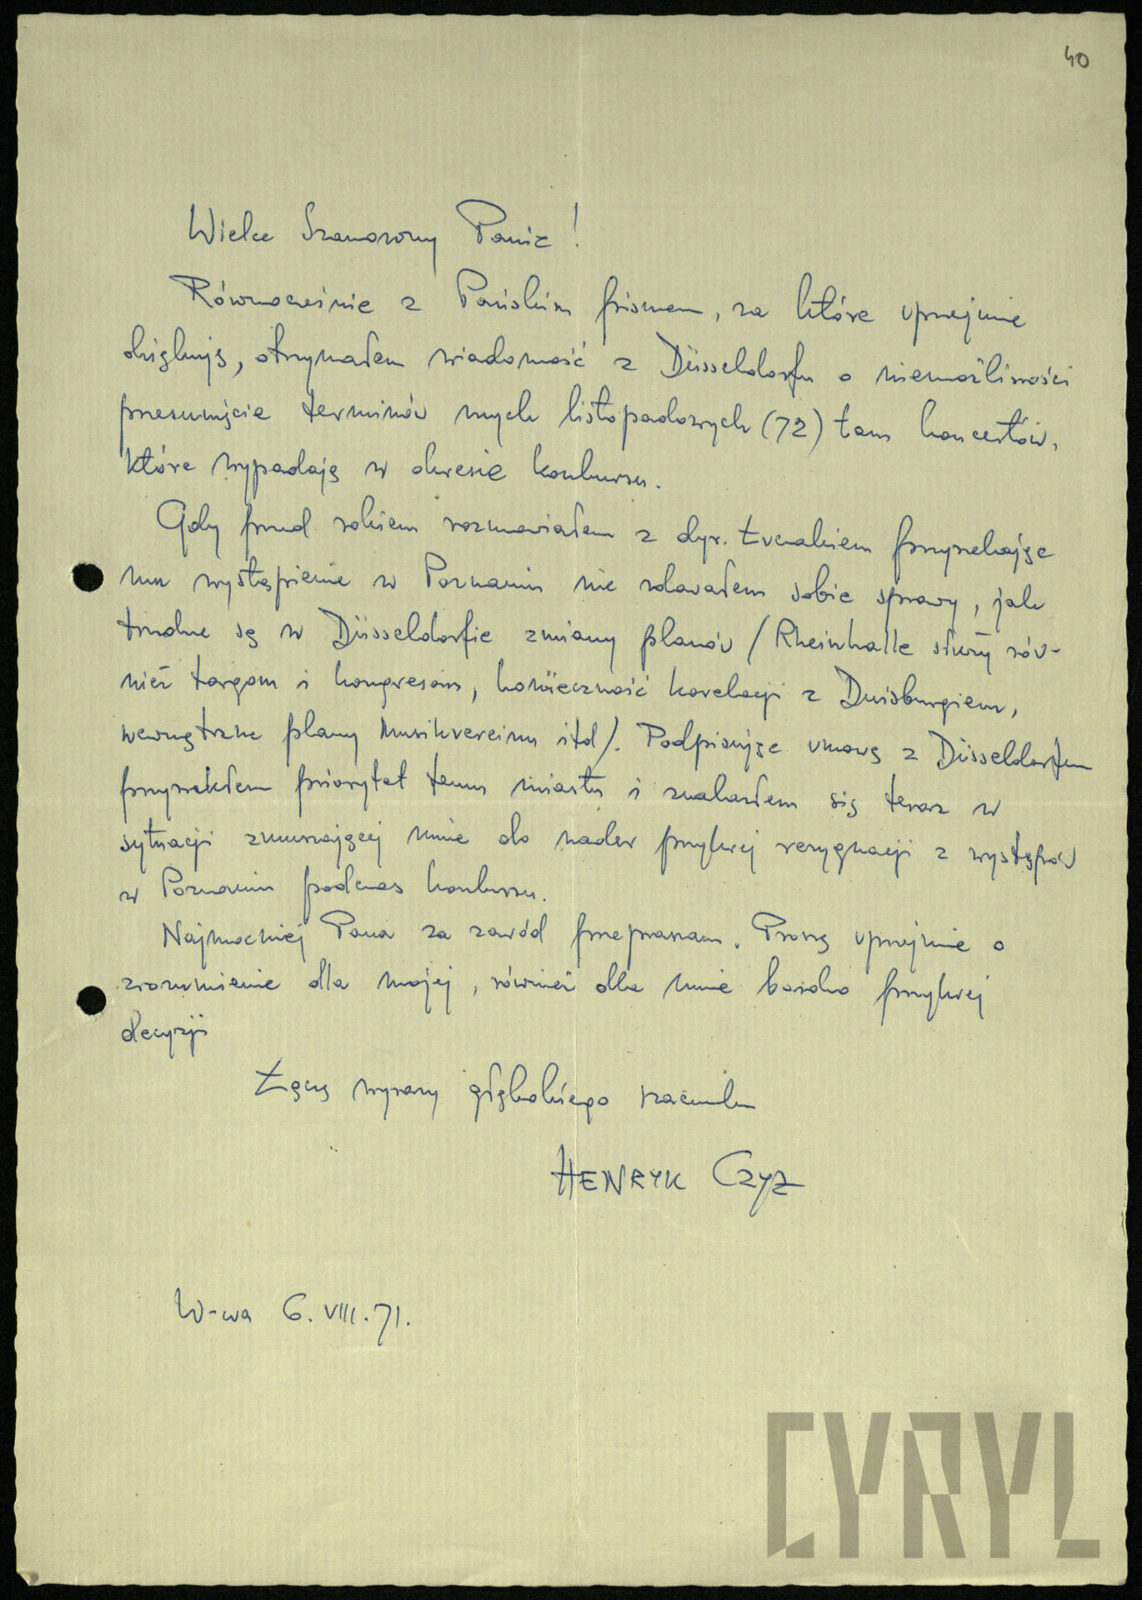 40
Wielce Szanowny Panie!
Równocześnie z Pańskim pismem, za które uprzejmie
dziękuję, otrzymałem wiadomość z Düsseldorfu o niemożliwości
przesunięcie terminów mych listopadowych (72) tam koncertów,
które wypadają w okresie konkursu.
Gdy przed rokiem rozmawiałem z dyr. przyrzekając
mu wystąpienie w Poznaniu nie zdawałem sobie sprawy, jak
trudne są w Düsseldorfie zmiany planów /Rheinhalle służy rów-
nież targom i kongresom, konieczność korelacji z Duisburgiem,
wewnętrzne plany Musikvereinu itd/. Podpisując umowę z Düsseldorfem
przyrzekłem priorytet temu miastu i znalazłem się teraz w
sytuacji zmuszającej mnie do nader przykrej rezygnacji z występów
w Poznaniu podczas konkursu.
Najmocniej Pana za zawód przepraszam. Proszę uprzejmie o
zrozumienie dla mojej, również dla mnie bardzo przykrej
decyzji
Łączę wyrazy głębokiego szacunku
HENRYK CZYŻ
W-wa 6.VIII.71.
CYRYL